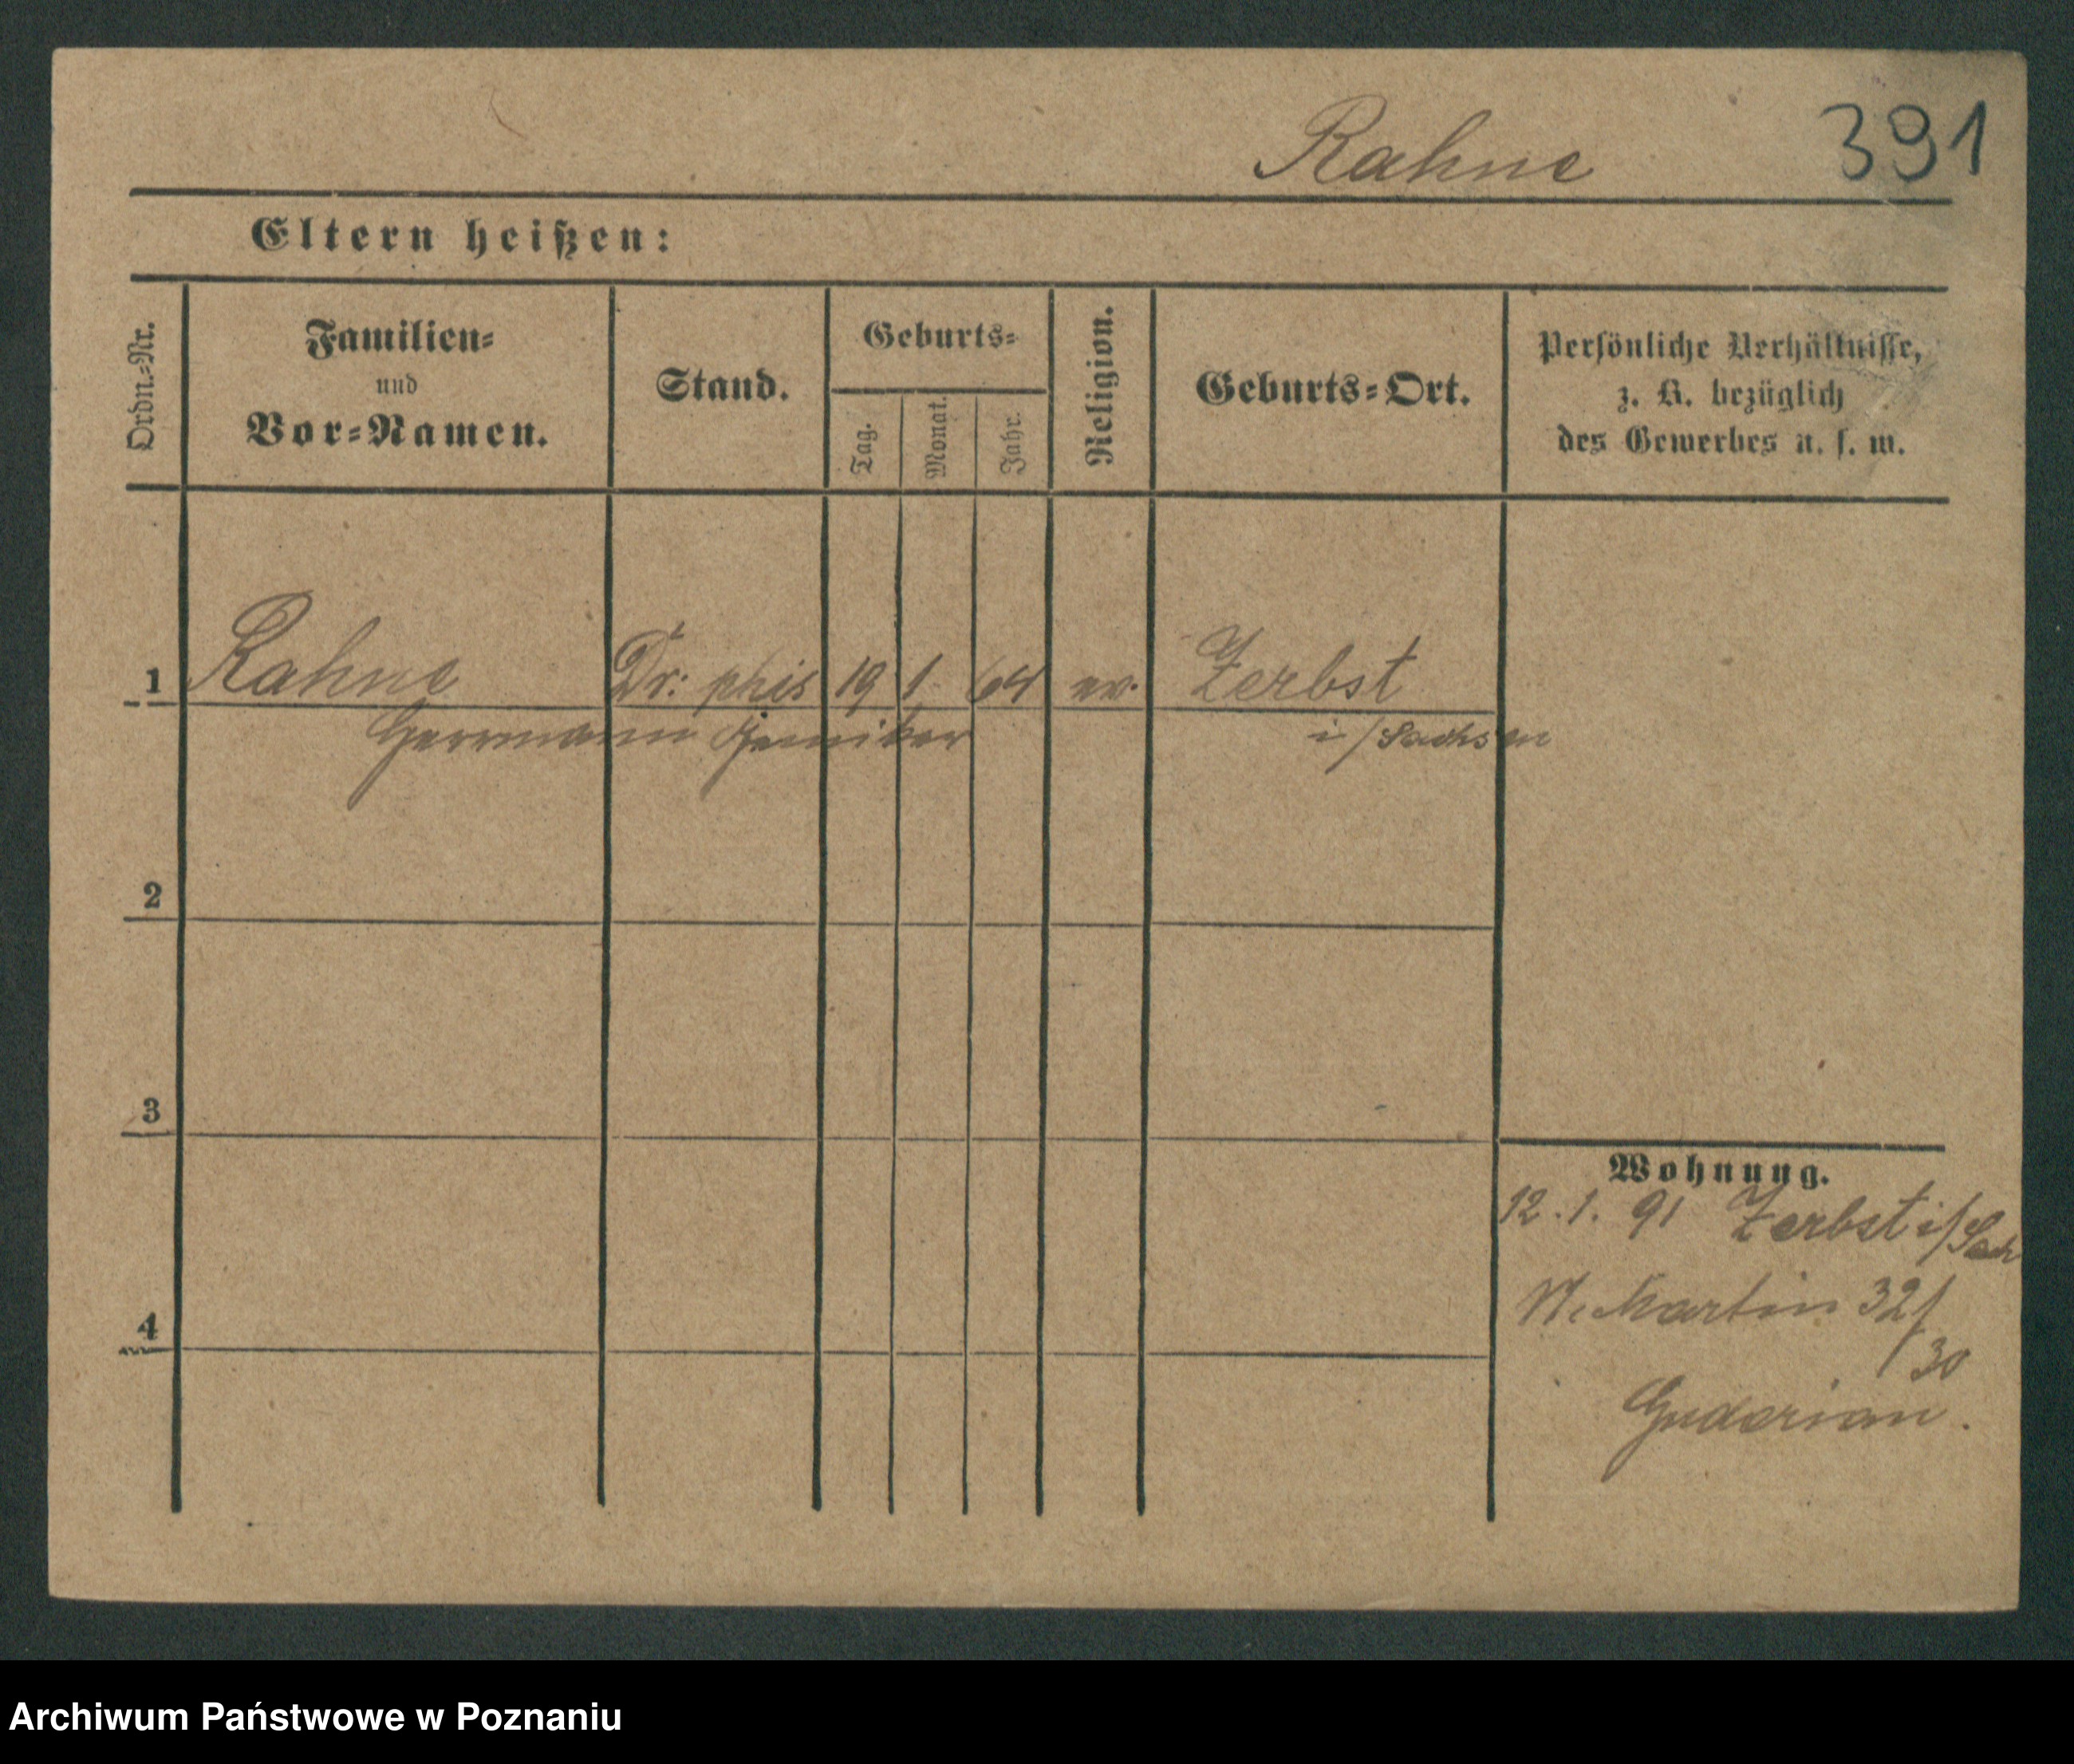 Rahne
391
Eltern heißen:
Ordn.-Nr.
Familien-
und
Vor-Namen.
Stand.
Geburts-
Tag.
Monat.
Jahr.
Religion.
Geburts-Ort.
Persönliche Verhältnisse,
z. B. bezüglich
des Gewerbes u. s. w.
1 Rahne Dr: phil 19 1 64 ev. Zerbst
Herrmann i/Sachsen
2
3
4
Wohnung.
12.1.91 Zerbst i/Sach
Martin 32/
30
Guderian.
Archiwum Państwowe w Poznaniu